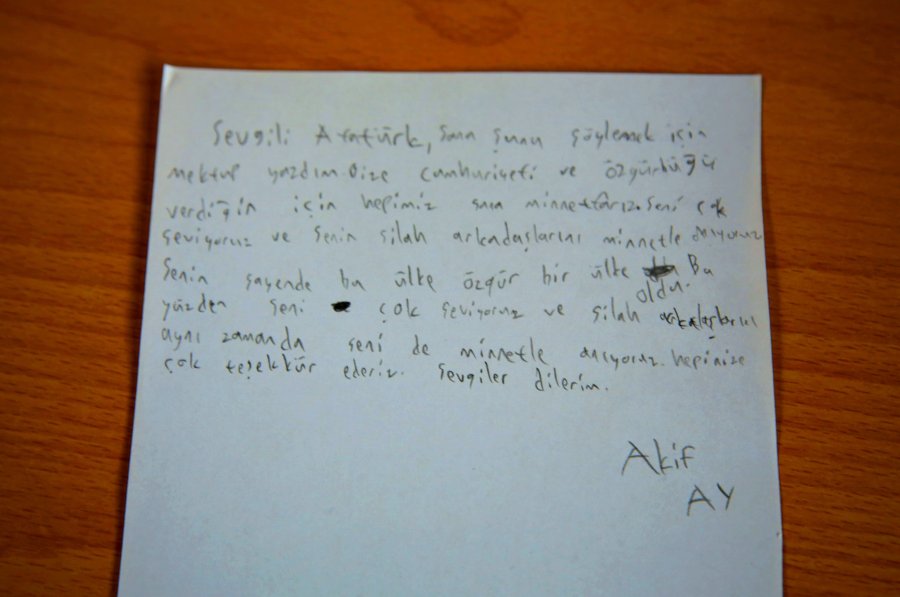 Sevgili Atatürk, sana şunu söylemek için
mektup yazdım. Bize cumhuriyeti ve özgürlüğü
verdiğin için hepimiz sana minnettarız. Seni çok
seviyoruz ve senin silah arkadaşlarını minnetle anıyoruz
Senin sayende bu ülke özgür bir ülke oldu. Bu
yüzden seni çok seviyoruz ve silah arkadaşlarını
aynı zamanda seni de minnetle anıyoruz. hepinize
çok teşekkür ederiz. Sevgiler dilerim.
Akif
AY